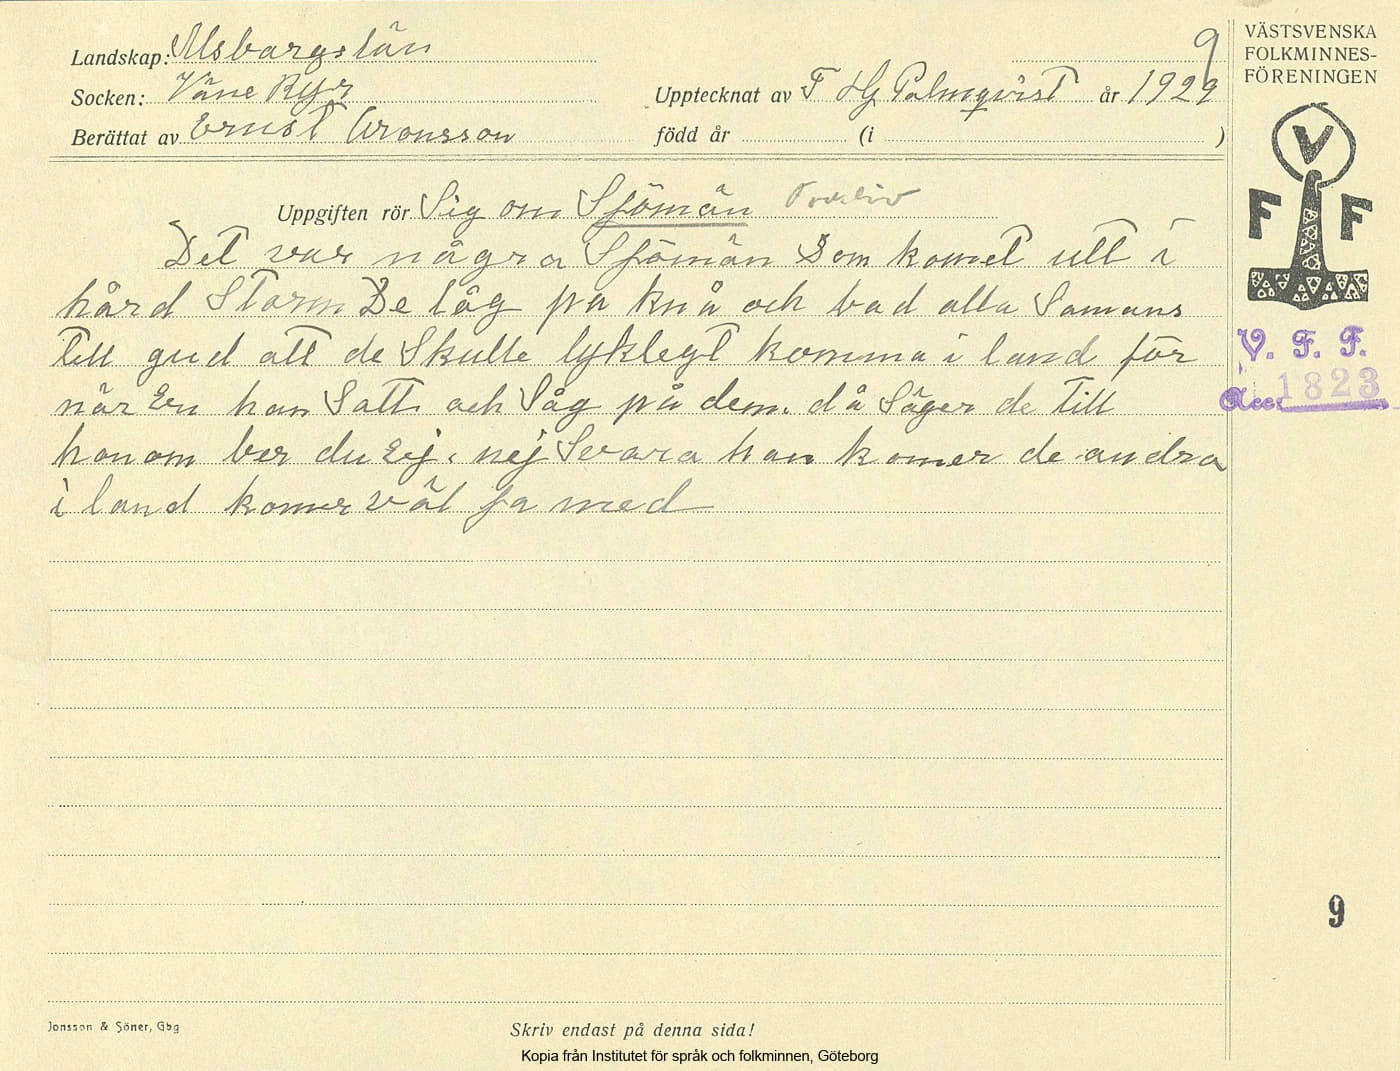 9
VÄSTSVENSKA
FOLKMINNES-
FÖRENINGEN
Landskap: Alsborgslän
Socken: Väne Ryr
Upptecknat av F Hj Palmqvist år 1929
Berättat av Ernst Aronsson
född år (i )
V
F F
Uppgiften rör Sig om Sjömän
Det var några Sjömän Som komet utt i
hård Storm De låg på knå och bad alla Samans
till gud att de Skulle lyklegt komma i land för
när En han Satt och Såg på dem. då Säger de till
honom ber du Ej. nej Svara han komer de andra
i land komer väl ja med
V. F. F.
Acc: 1823
9
Jonsson & Söner, Gbg
Skriv endast på denna sida!
Kopia från Institutet för språk och folkminnen, Göteborg